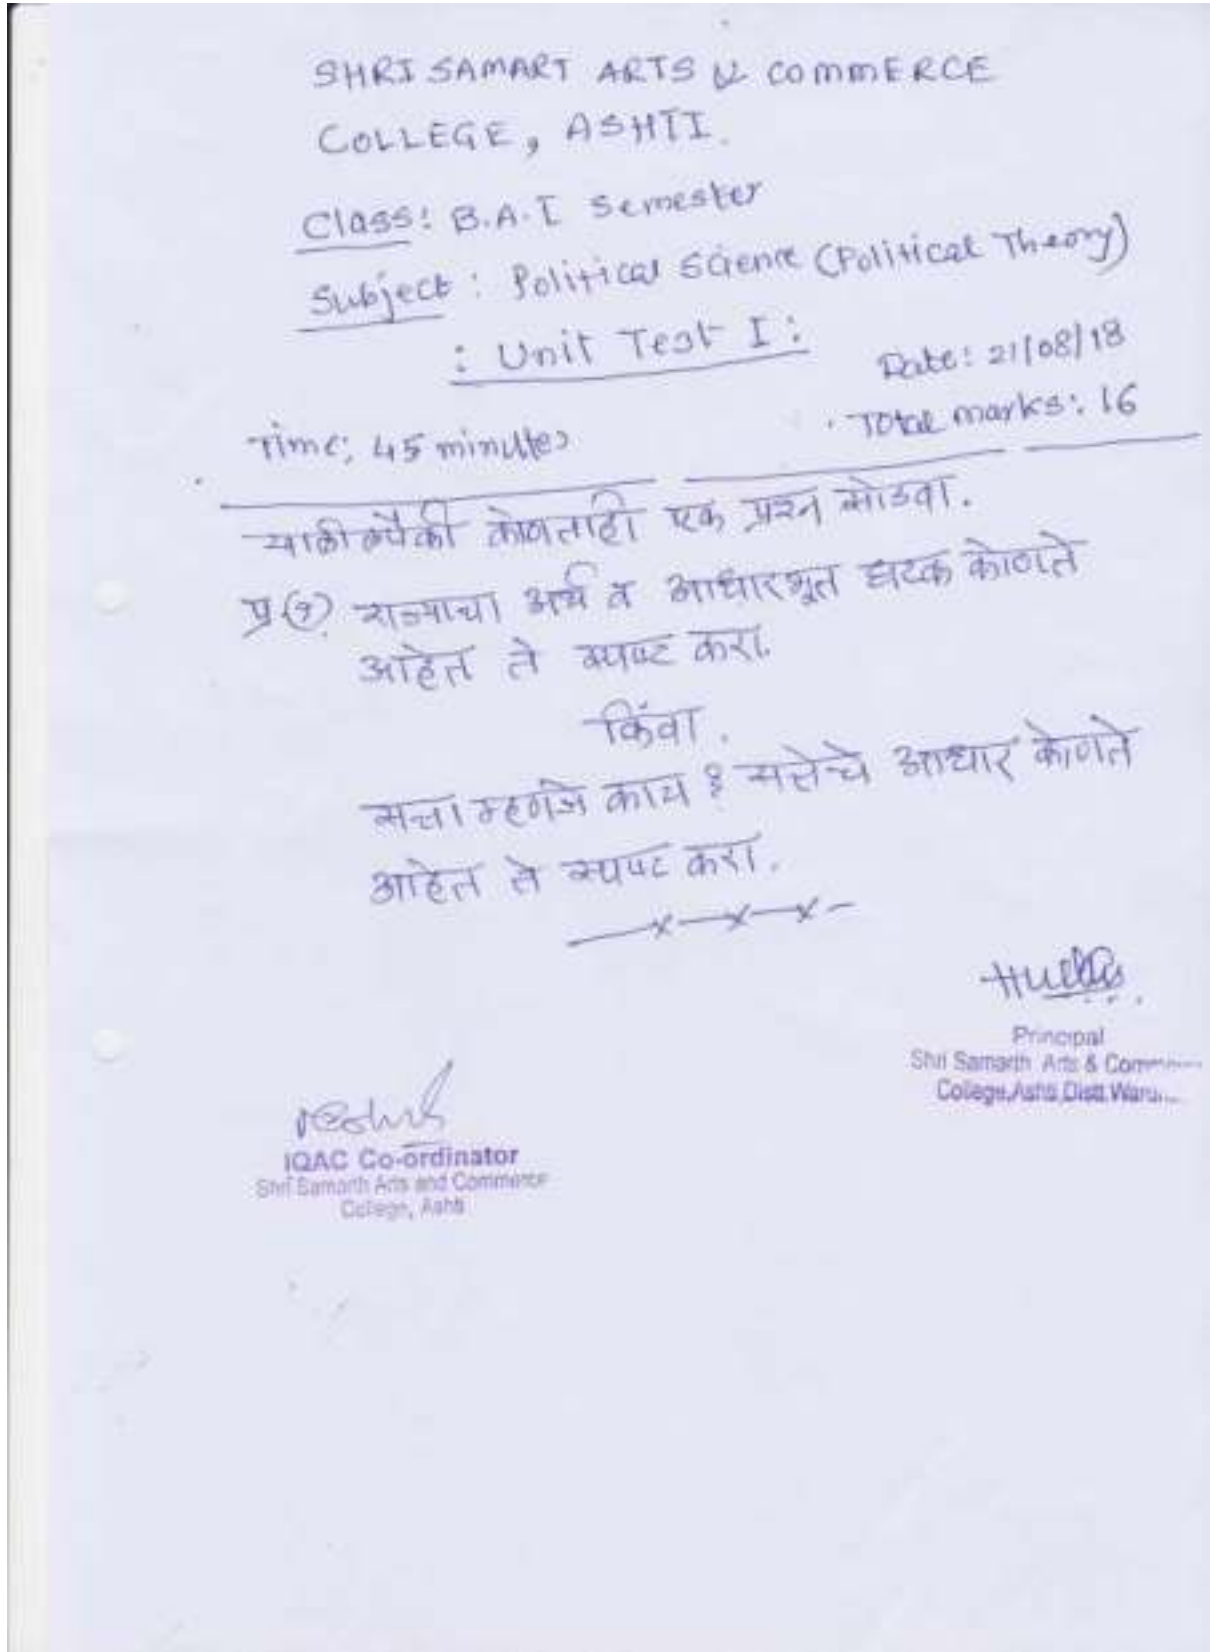 SHRI SAMART ARTS & COMMERCE
COLLEGE, ASHTI.
Class: B.A.I Semester
Subject: Political Science (Political Theory)
: Unit Test I :
Date: 21/08/18
Time: 45 minutes
Total marks: 16
खालीलपैकी कोणताही एक प्रश्न सोडवा.
प्र (१) राज्याचा अर्थ व आधारभूत घटक कोणते
आहेत ते स्पष्ट करा.
किंवा.
सत्ता म्हणजे काय ? सत्तेचे आधार कोणते
आहेत ते स्पष्ट करा.
Principal
Shri Samarth Arts & Comm
College, Ashti, Distt. War
IQAC Co-ordinator
Shri Samarth Arts and Commerce
College, Ashti